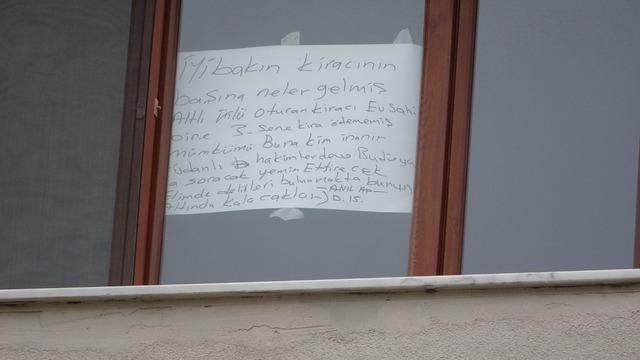 iyibakın kiracının
başına neler gelmiş
Altlı üstlü oturan kiracı Evsahi
bine 3-sene kira ödememiş
mümkünmü Buna kim inanır
hakimlerde Bu
soracak yemin Ettirecek
Elimde delilleri bulunmakta bunun
Altında kalacaklar) D.15.